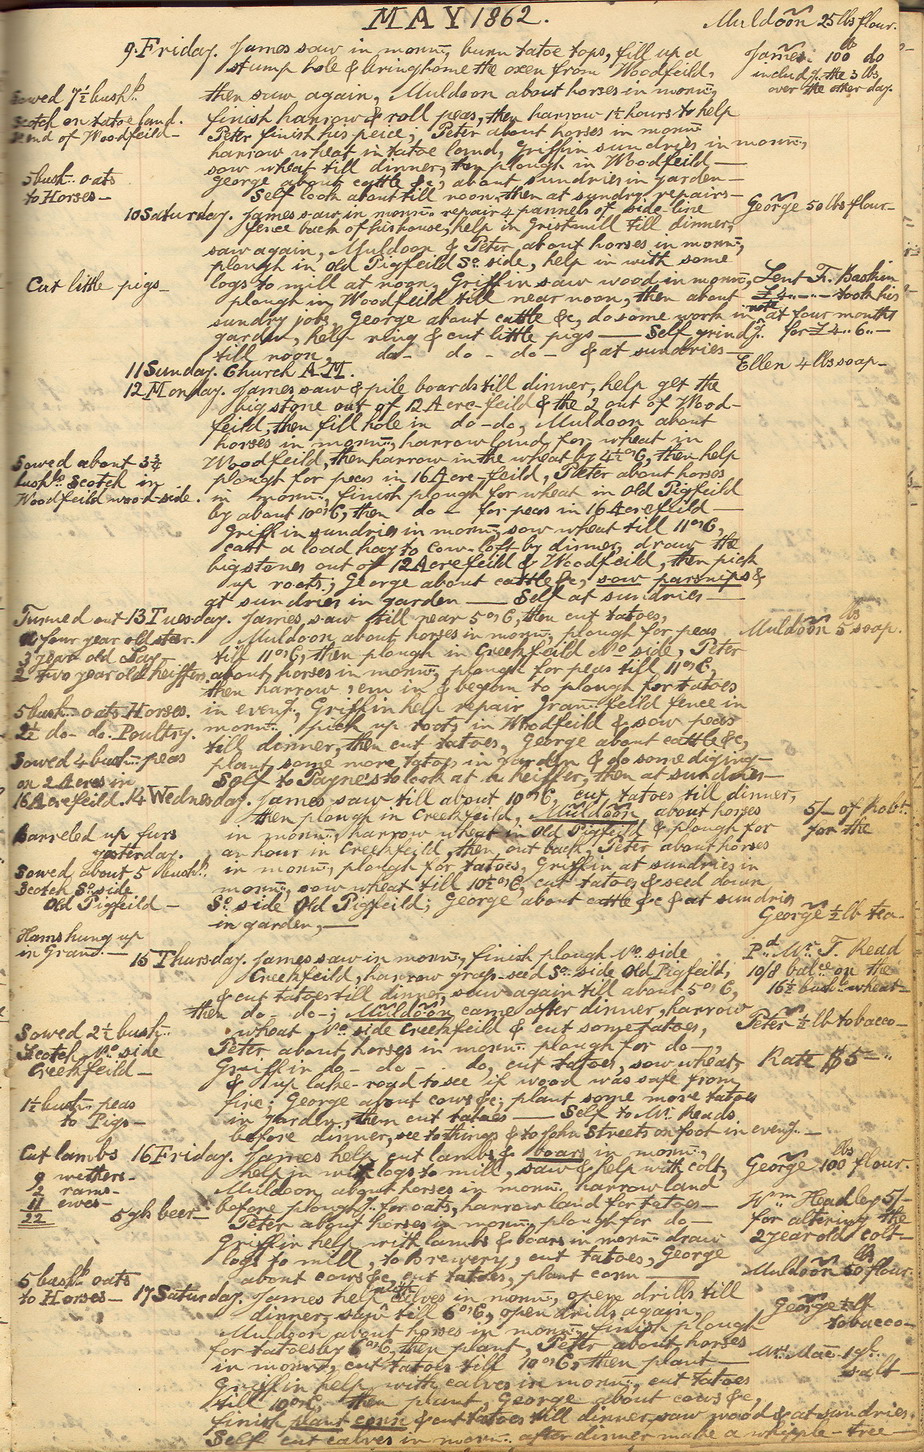 MAY 1862.
Muldoon 25 lbs flour.
9 Friday. James saw in mornng, burn tatoe tops, fill up a
stump hole & bring home the oxen from Woodfeild,
James 100 lb do
includg. the 3 lbs.
over the other day.
Sowed 7½ bushls
Scotch on tatoe land.
end of Woodfeild—
then saw again, Muldoon about horses in mornng,
finish harrow & roll peas, then harrow 1½ hours to help
Peter finish his peice; Peter about horses in mornng
harrow wheat in tatoe land, Griffin sundries in mornng,
sow wheat till dinner, then plough in Woodfeild —
5 bush. oats
to Horses—
George about cattle &c, about sundries in garden—
Self look about till noon, then at sundry repairs—
10 Saturday. James saw in mornng repair 4 pannels of side-line
George 50 lbs flour—
fence back of his house, help in Gristmill till dinner,
saw again, Muldoon & Peter about horses in mornng,
plough in Old Pigfeild So. side, help in with some
logs to mill at noon, Griffin saw wood in mornng,
Cut little pigs—
Lent T. Baskin
£4..–..– took his
note at four months
for £4.. 6..–
plough in Woodfeild till near noon, then about
sundry jobs, George about cattle &c, do some work in
garden, help ring & cut little pigs — Self grindg.
till noon, do- do- do- & at sundries—
11 Sunday. Church A.M.
Ellen 4 lbs soap—
12 Monday. James saw & pile boards till dinner, help get the
big stone out of 12 Acre-feild & the 2 out of Wood-
feild, then fill hole in do-do, Muldoon about
horses in mornng, harrow land for wheat in
Sowed about 3¾
bushls Scotch in
Woodfeild wood-side.
Woodfeild, then harrow in the wheat by 4½ o'C, then help
plough for peas in 16 Acre-feild, Peter about horses
in mornng, finish plough for wheat in Old Pigfeild
by about 10 o'C, then do- for peas in 16 Acrefeild —
Griffin sundries in mornng sow wheat till 11 o'C,
cart a load hay to cow-loft by dinner, draw the
bigstones out of 12 Acrefeild & Woodfeild, then pick
up roots; George about cattle &c, sow parsnips &
at sundries in garden — Self at sundries—
Turned out
a four year old steer.
3 year old
2 two year old heiffers.
13 Tuesday. James, saw till near 5 o'C, then cut tatoes,
Muldoon 5 lbs soap.
Muldoon about horses in mornng, plough for peas
till 11 o'C, then plough in Creekfeild No side, Peter
about horses in mornng, plough for peas till 11 o'C,
then harrow 'em in & begin to plough for tatoes
5 bush. oats Horses.
2½ do- do. Poultry.
in eveng., Griffin help repair Grand feild fence in
mornng pick up roots in Woodfeild & sow peas
till dinner, then cut tatoes, George about cattle &c,
Sowed 4 bush. peas
on 2 Acres in
16 Acrefeild.
plant some more tatoes in garden & do some diging—
Self to Payne's to look at a heiffer, then at sundries—
14 Wednesday. James saw till about 10 o'C, cut tatoes till dinner,
then plough in Creekfeild, Muldoon about horses
5/- of Robt.
for the
Barreled up furs
yesterday.
in mornng harrow wheat in Old Pigfeild & plough for
an hour in Creekfeild, then, out back, Peter about horses
in mornng, plough for tatoes, Griffin at sundries in
Sowed about 5 bushls.
Scotch So. side
Old Pigfeild —
mornng, sow wheat till 10½ o'C, cut tatoes & seed down
So. side Old Pigfeild; George about cattle &c & at sundries
in garden,—
George ½ lb tea.
Hams hung up
in Grand.—
15 Thursday. James saw in mornng, finish plough No. side
Pd. Mr. T. Read
10/8 balce on the
16½ bushs wheat—
Creekfeild, harrow grass-seed So. side Old Pigfeild,
& cut tatoes till dinner, saw again till about 5 o'C,
then do- do-; Muldoon came after dinner, harrow
Sowed 2½ bush.
Scotch No. side
Creekfeild—
wheat No. side Creekfeild & cut some tatoes,
Peter ½ lb tobacco—
Peter about horses in mornng plough for do—,
Griffin do- do- do, cut tatoes, sow wheat,
Kate $5=..
& up lake-road to see if wood was safe from
1½ bush. peas
to Pigs—
fire; George about cows &c, plant some more tatoes
in garden, then cut tatoes — Self to Mr. Reads
before dinner, see to things & to John Streets on foot in eveng.—
Cut lambs
9 wethers-
2 rams-
11 ewes-
22
16 Friday. James help cut lambs & boars in mornng,
help in wit logs to mill, saw & help with colt,
George 100 lbs flour.
Muldoon about horses in mornng harrow land
5 gls beer—
before ploughg. for oats, harrow land for tatoes—
Wm Headley 5/-
for altering the
2 year old colt—
Peter about horses in mornng, plough for do—
Griffin help with lambs & boars in mornng draw
logs to mill, to brewery, cut tatoes, George
about cows &c, cut tatoes, plant corn
Muldoon 50 lbs flour.
5 bushls oats
to Horses—
17 Saturday. James help with calves in mornng, open drills till
dinner, saw till 6 o'C, open drills again,
George ½ lb
tobacco—
Muldoon about horses in mornng, finish plough
for tatoes by 6 o'C, then plant, Peter about horses
Mrs Mac. 1 qt.
salt—
in mornng, cut tatoes till 10 o'C, then plant—
Griffin help with calves in mornng, cut tatoes
till 10 o'C, then plant, George about cows &c,
finish plant corn & cut tatoes till dinner, saw wood & at sundries.
Self cut calves in mornng. after dinner make a whipple-tree—